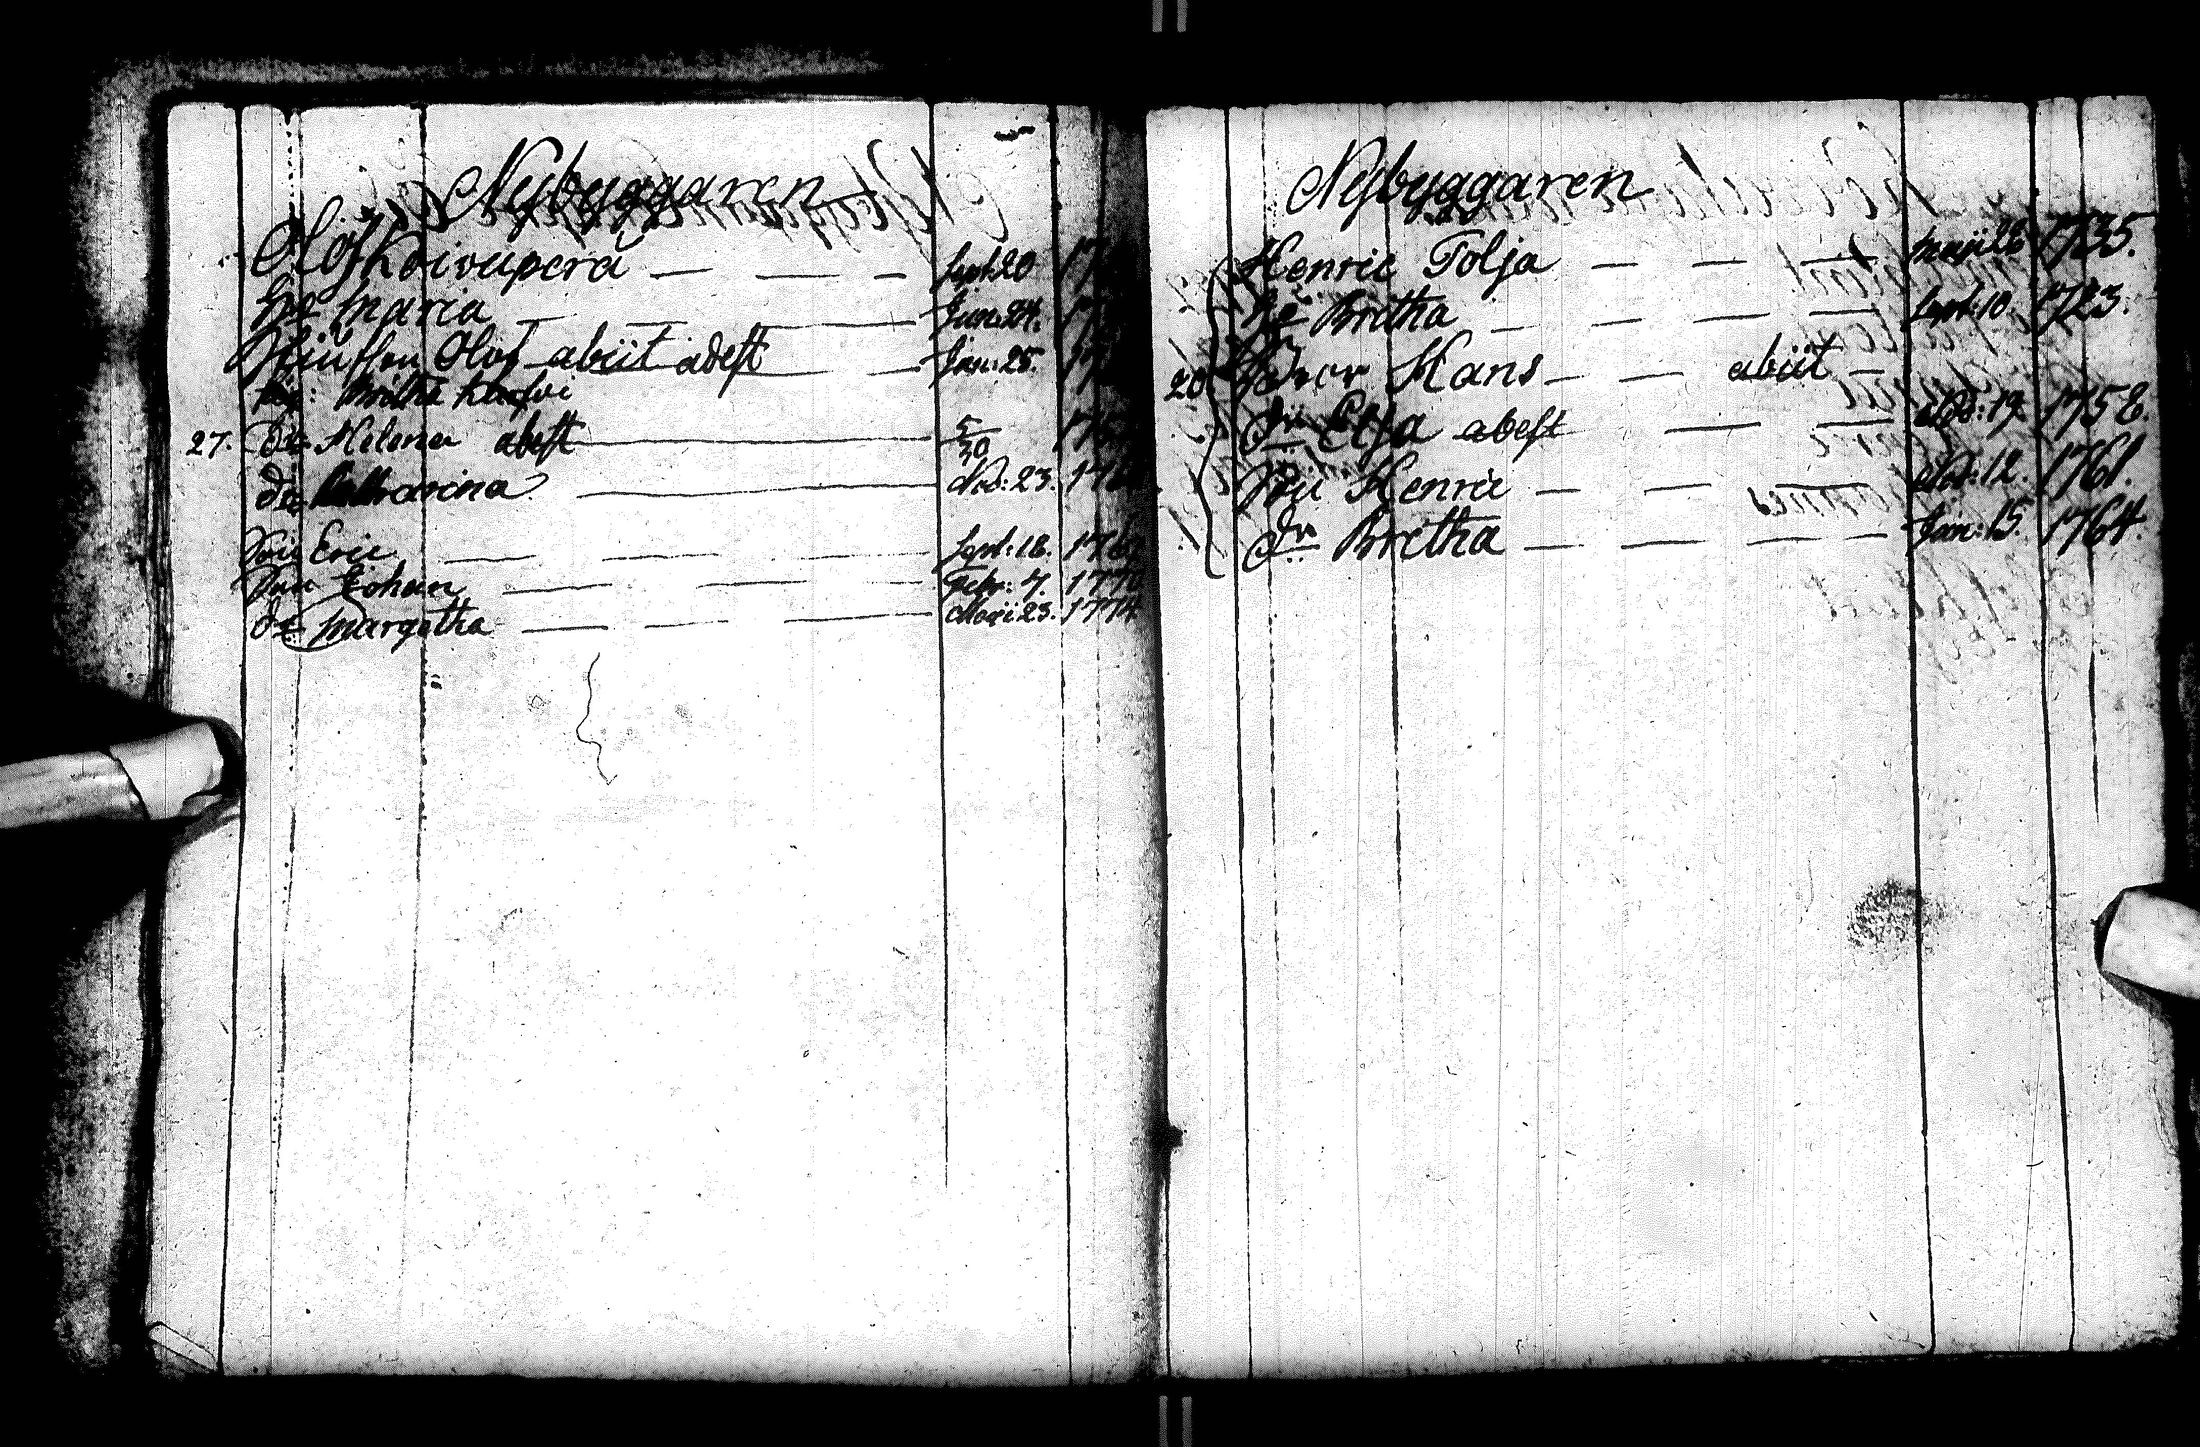 Nybyggaren
Olof Koivuperä — — — Sept: 20 17
Hu Maria — — — Jun: 24. 17
Olof abiit adest — Jan: 25. 17
Britha
27. Dr Helena abest — 5/30 17
Dr Catharina — Nov: 23. 17
Son Eric — — — Sept: 18. 176
Son Johan — — — Febr: 7. 177
Dr Margetha — — — Maji 23. 1774
Nybyggaren
Henric Tolja — — — Maji 26 1735.
Hu Britha — — — — Sept: 10. 1723.
20 Hans — — abiit —
Dr abest — — Nov: 19. 1758.
Henric — — — 12. 1761.
Dr Bretha — — — — Jan: 15. 1764.